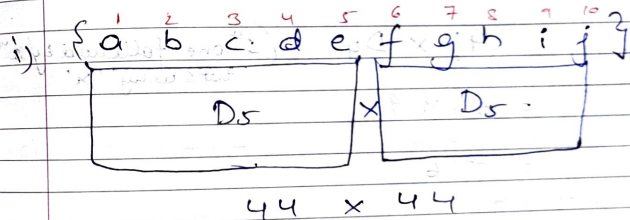 1 2 3 4 5 6 7 8 9 10
i) { a b c d e f g h i j }
D5 x D5
44 x 44